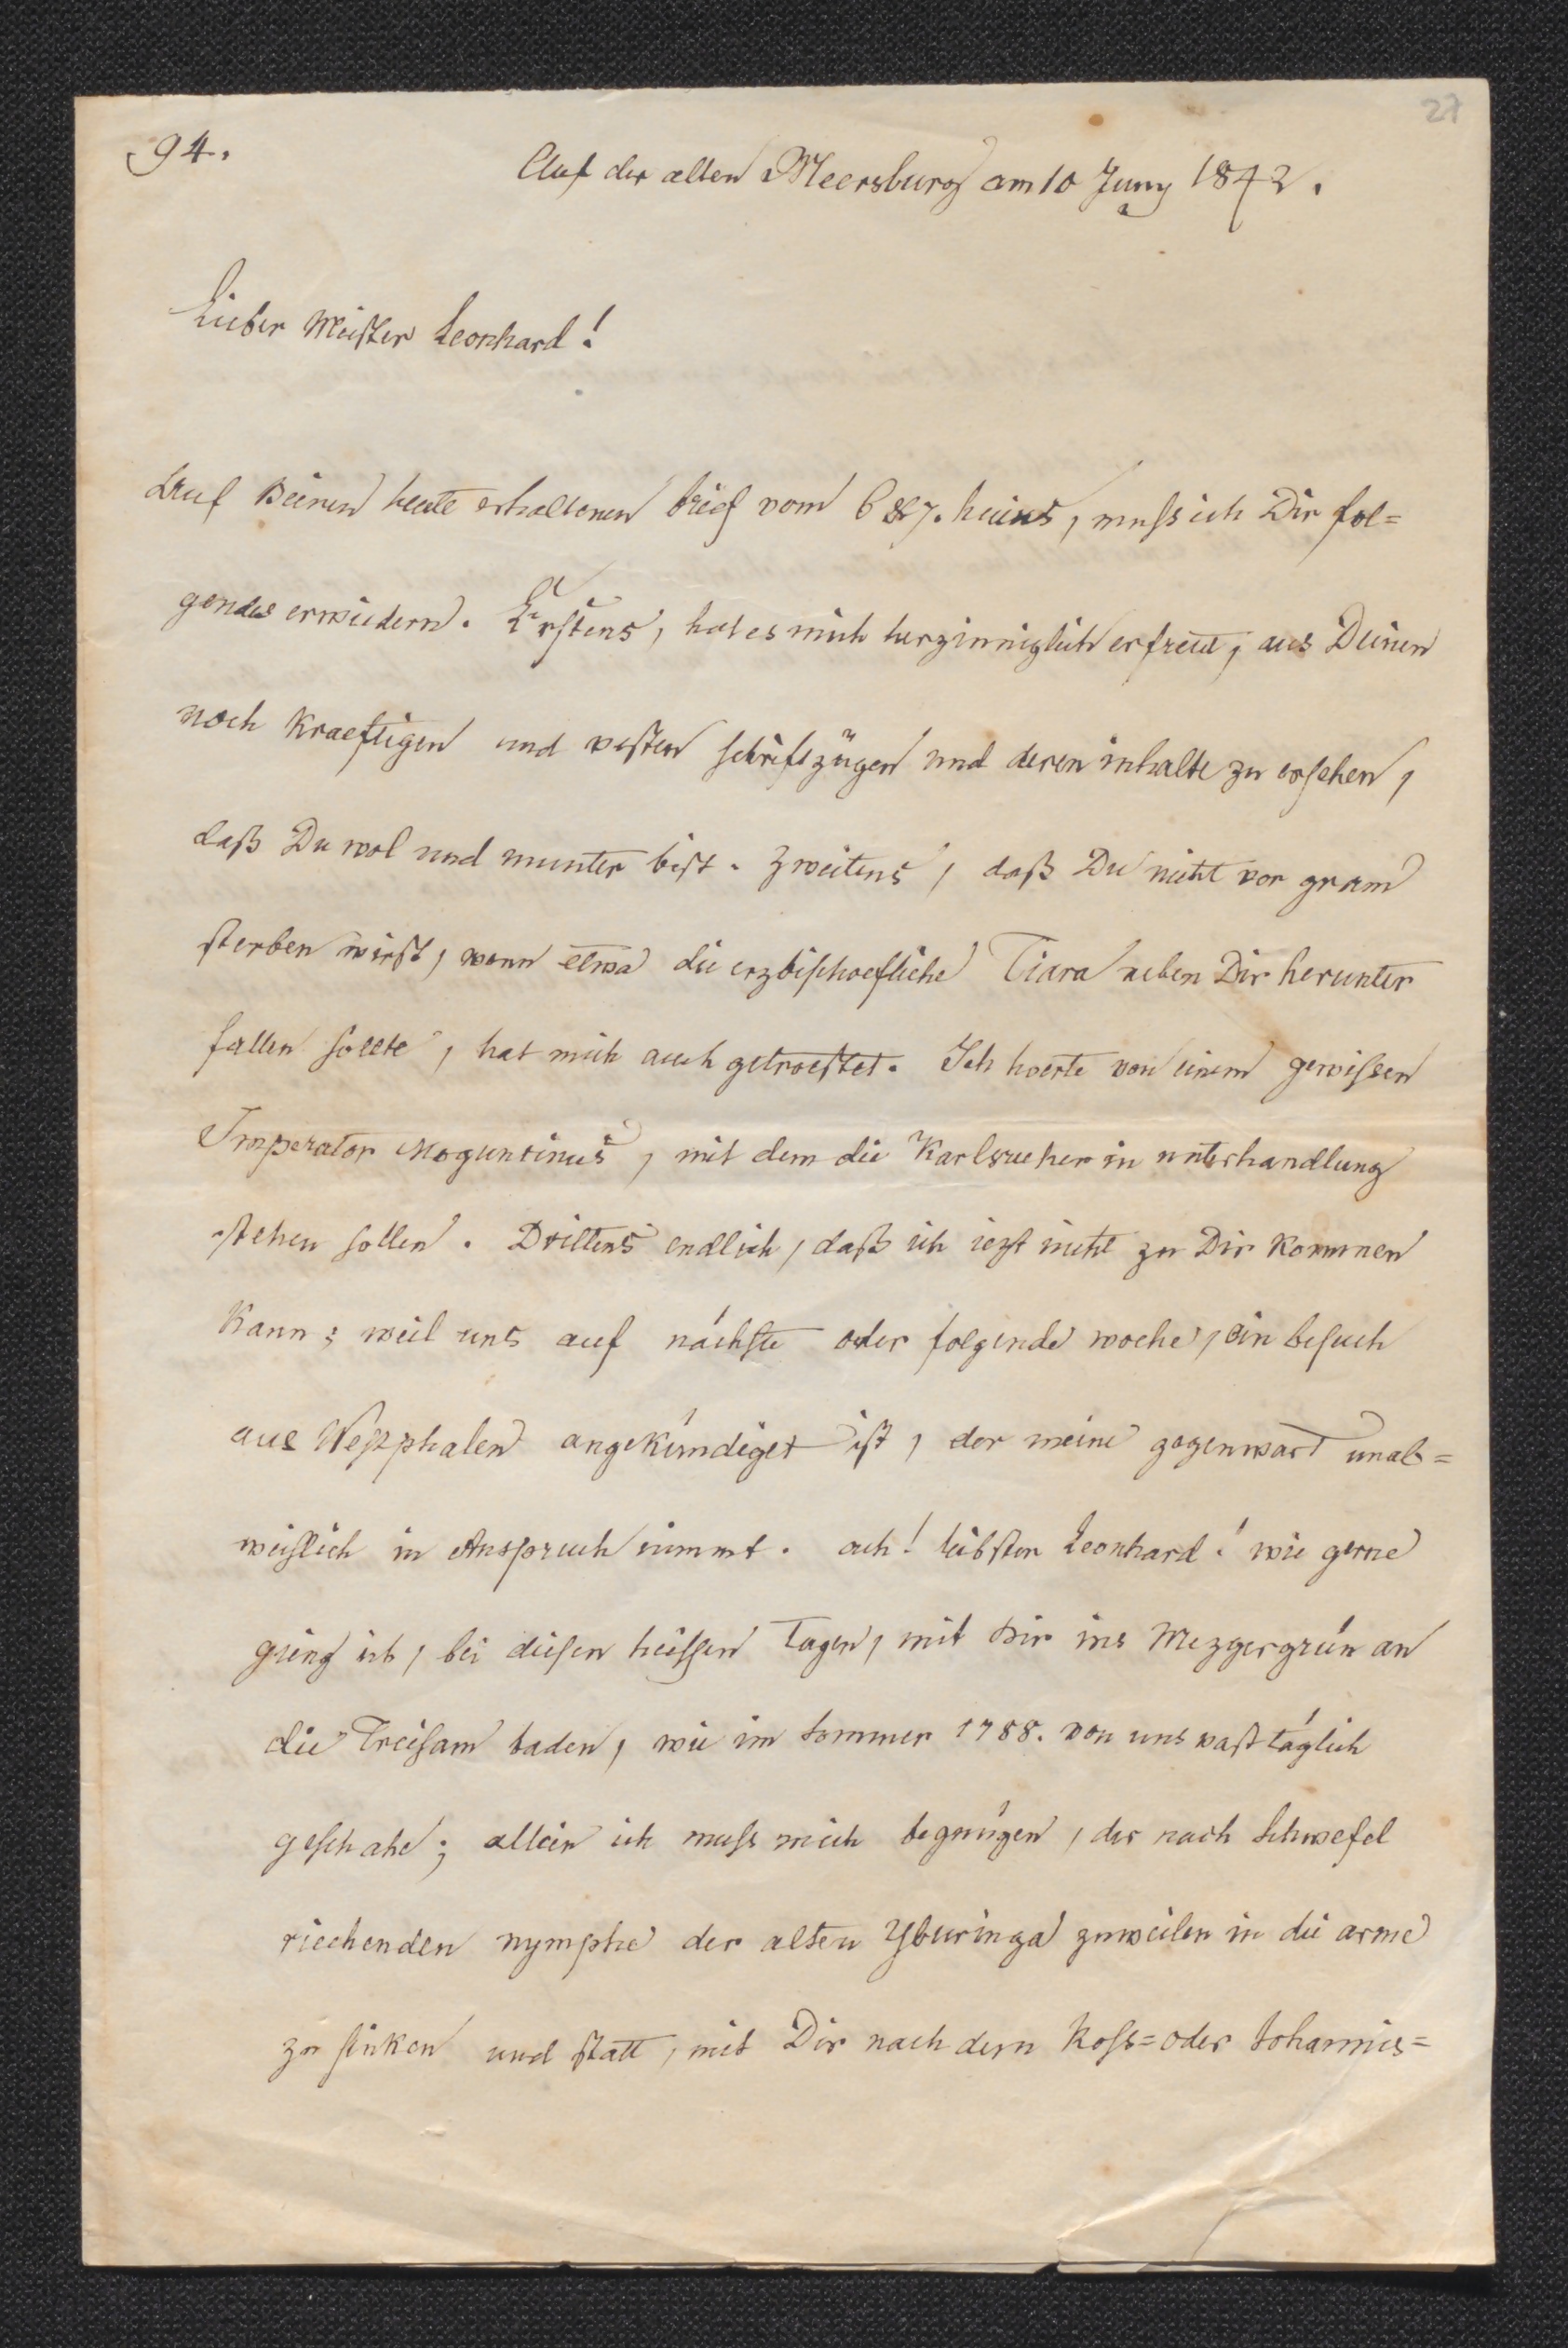 27
94.
Auf der alten Meersburg am 10 Juny 1842.
Lieber Meister Leonhard!
Auf Deinen heute erhaltenen brief vom 6 & 7. huius, muss ich Dir fol=
gendes erwiedern. Erstens, hat es mich herzinniglich erfreut, aus Deinen
noch kraeftigen und vesten schriftzügen und deren inhalte zu ersehen,
daß Du wol und munter bist. Zweitens, daß Du nicht vor gram
sterben wirst, wenn etwa die erzbischoefliche Tiara neben Dir herunter
fallen sollte, hat mich auch getroestet. Ich hoerte von einem gewissen
Imperator Moguntinus, mit dem die Karlsrueher in unterhandlung
stehen sollen. Drittens endlich, daß ich iezt nicht zu Dir kommen
kann; weil uns auf nächste oder folgende woche, ein besuch
aus Westphalen angekündiget ist, der meine gegenwart unab=
weislich in Anspruch nimmt. ach! liebster Leonhard! wie gerne
gieng ich, bei diesen heissen Tagen, mit Dir ins Mezgergrün an
die Treisam baden, wie im sommer 1788. von uns vast täglich
geschahe; allein ich muss mich begnügen, der nach schwefel
riechenden nymphe der alten Yburinga zuweilen in die arme
zu sinken und statt, mit Dir nach dem Ross= oder Johannis=